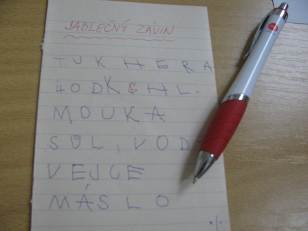 JABLEČNÝ ZÁVIN
TUK HERA
40 DKG HL.
MOUKA
SOL, VOD
VEJCE
MÁSLO
./.